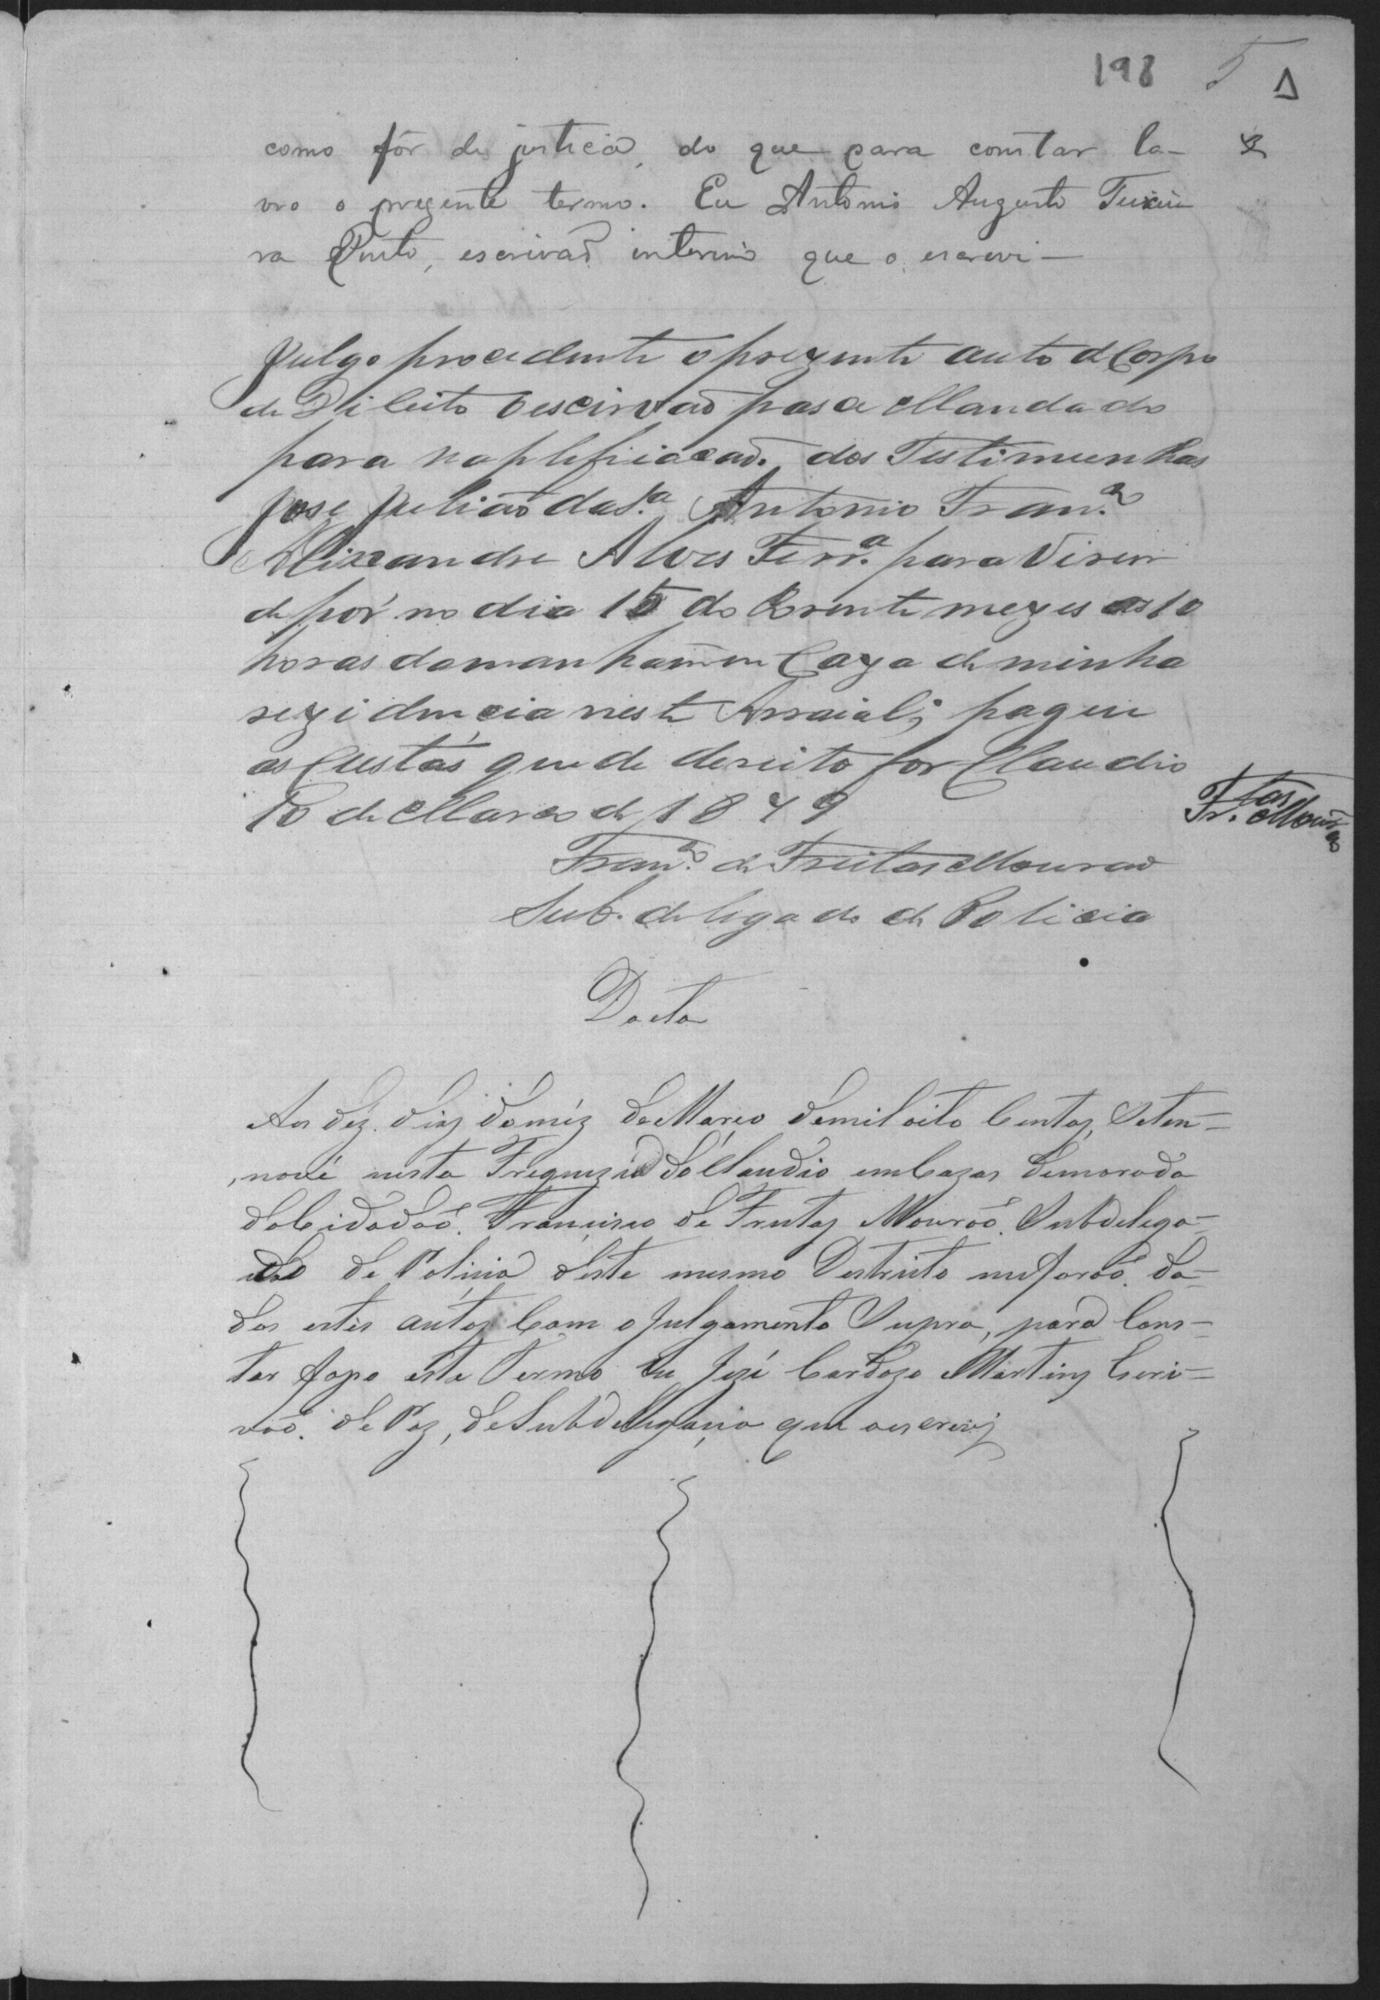 198 5
como fôr de justiça, do que para constar la-
vro o prezente termo. Eu Antonio Augusto Teixei
ra Pinto, escrivaõ interino que o escrevi—
Julgo procedente o prezente auto de Corpo
de Dileito o escirvaõ pase Mandado
para das Testimunhas
Jose Juliaõ da S.ª Antonio Fran.co
Alixandre Alves Ferr.ª para virem
depôr no dia 15 do Corente mezes as 10
horas da manham em Caza de minha
rezidencia neste Arraial; pague
as Custas que de dereito for Claudio
10 de Março de 1879
Fr.tas
Fr.co Mourão
Fran.co de Freitas Mourao
Sub. delegado de Policia
Dacta
Aos déz dias do mêz de Março de mil oito Centos, Seten-
, nove nesta Freguezia do Claudio em Cazas de morada
do Cidadaõ Francisco de Freitas Mouraõ Subdelega-
do de Policia deste mesmo Destrito me foraõ da-
dos estes autos Com o Julgamento Supra, para Cons-
tar faço este Termo Eu José Cardozo Martins Escri-
vaõ de Paz, de Subdelegacia que o escrevij